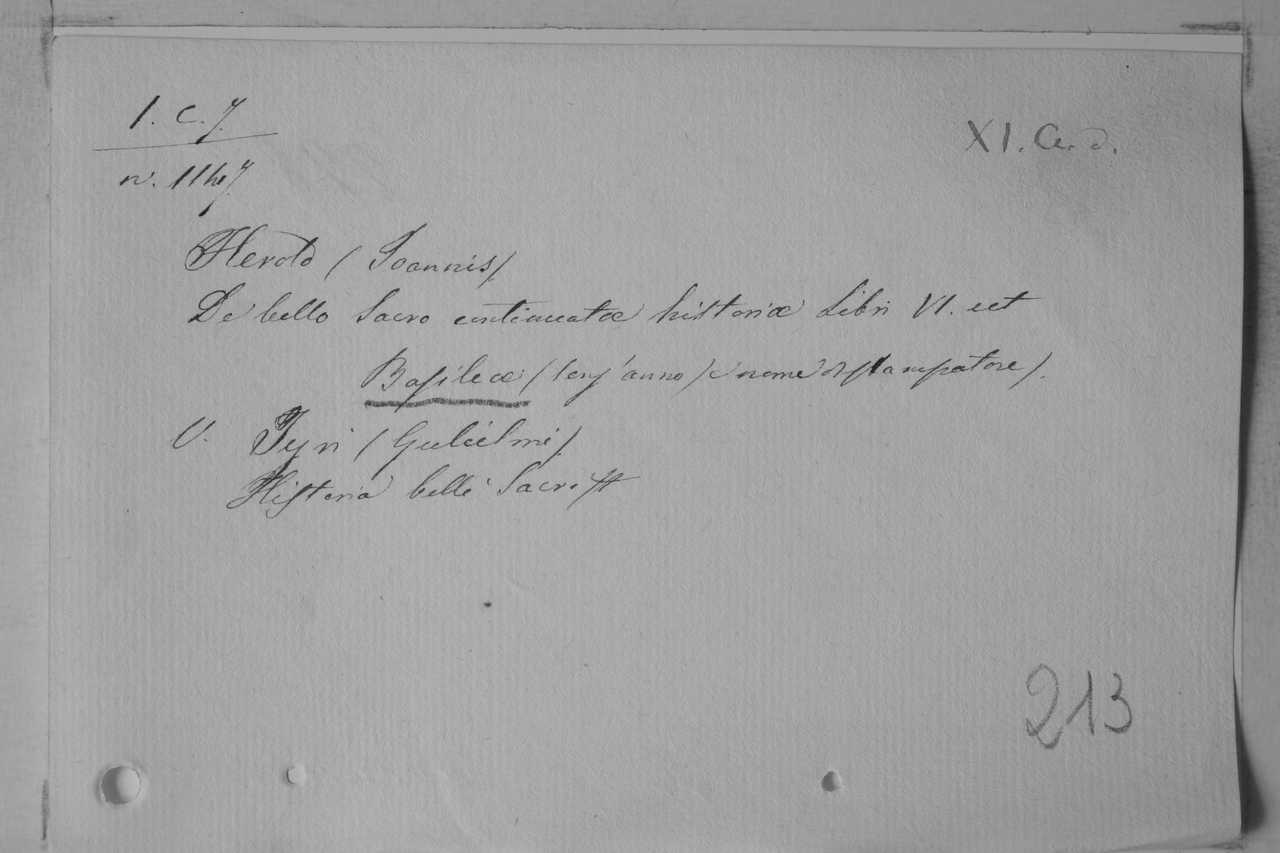 I. C. 7.
XI. Ce. d.
n. 1147
Herold (Joannis)
De bello Sacro continuatæ historiæ Libri VI. ect
Basileæ (senz'anno) e nome di stampatore).
V. Tyri (Gulielmi)
Historia belli Sacri
213